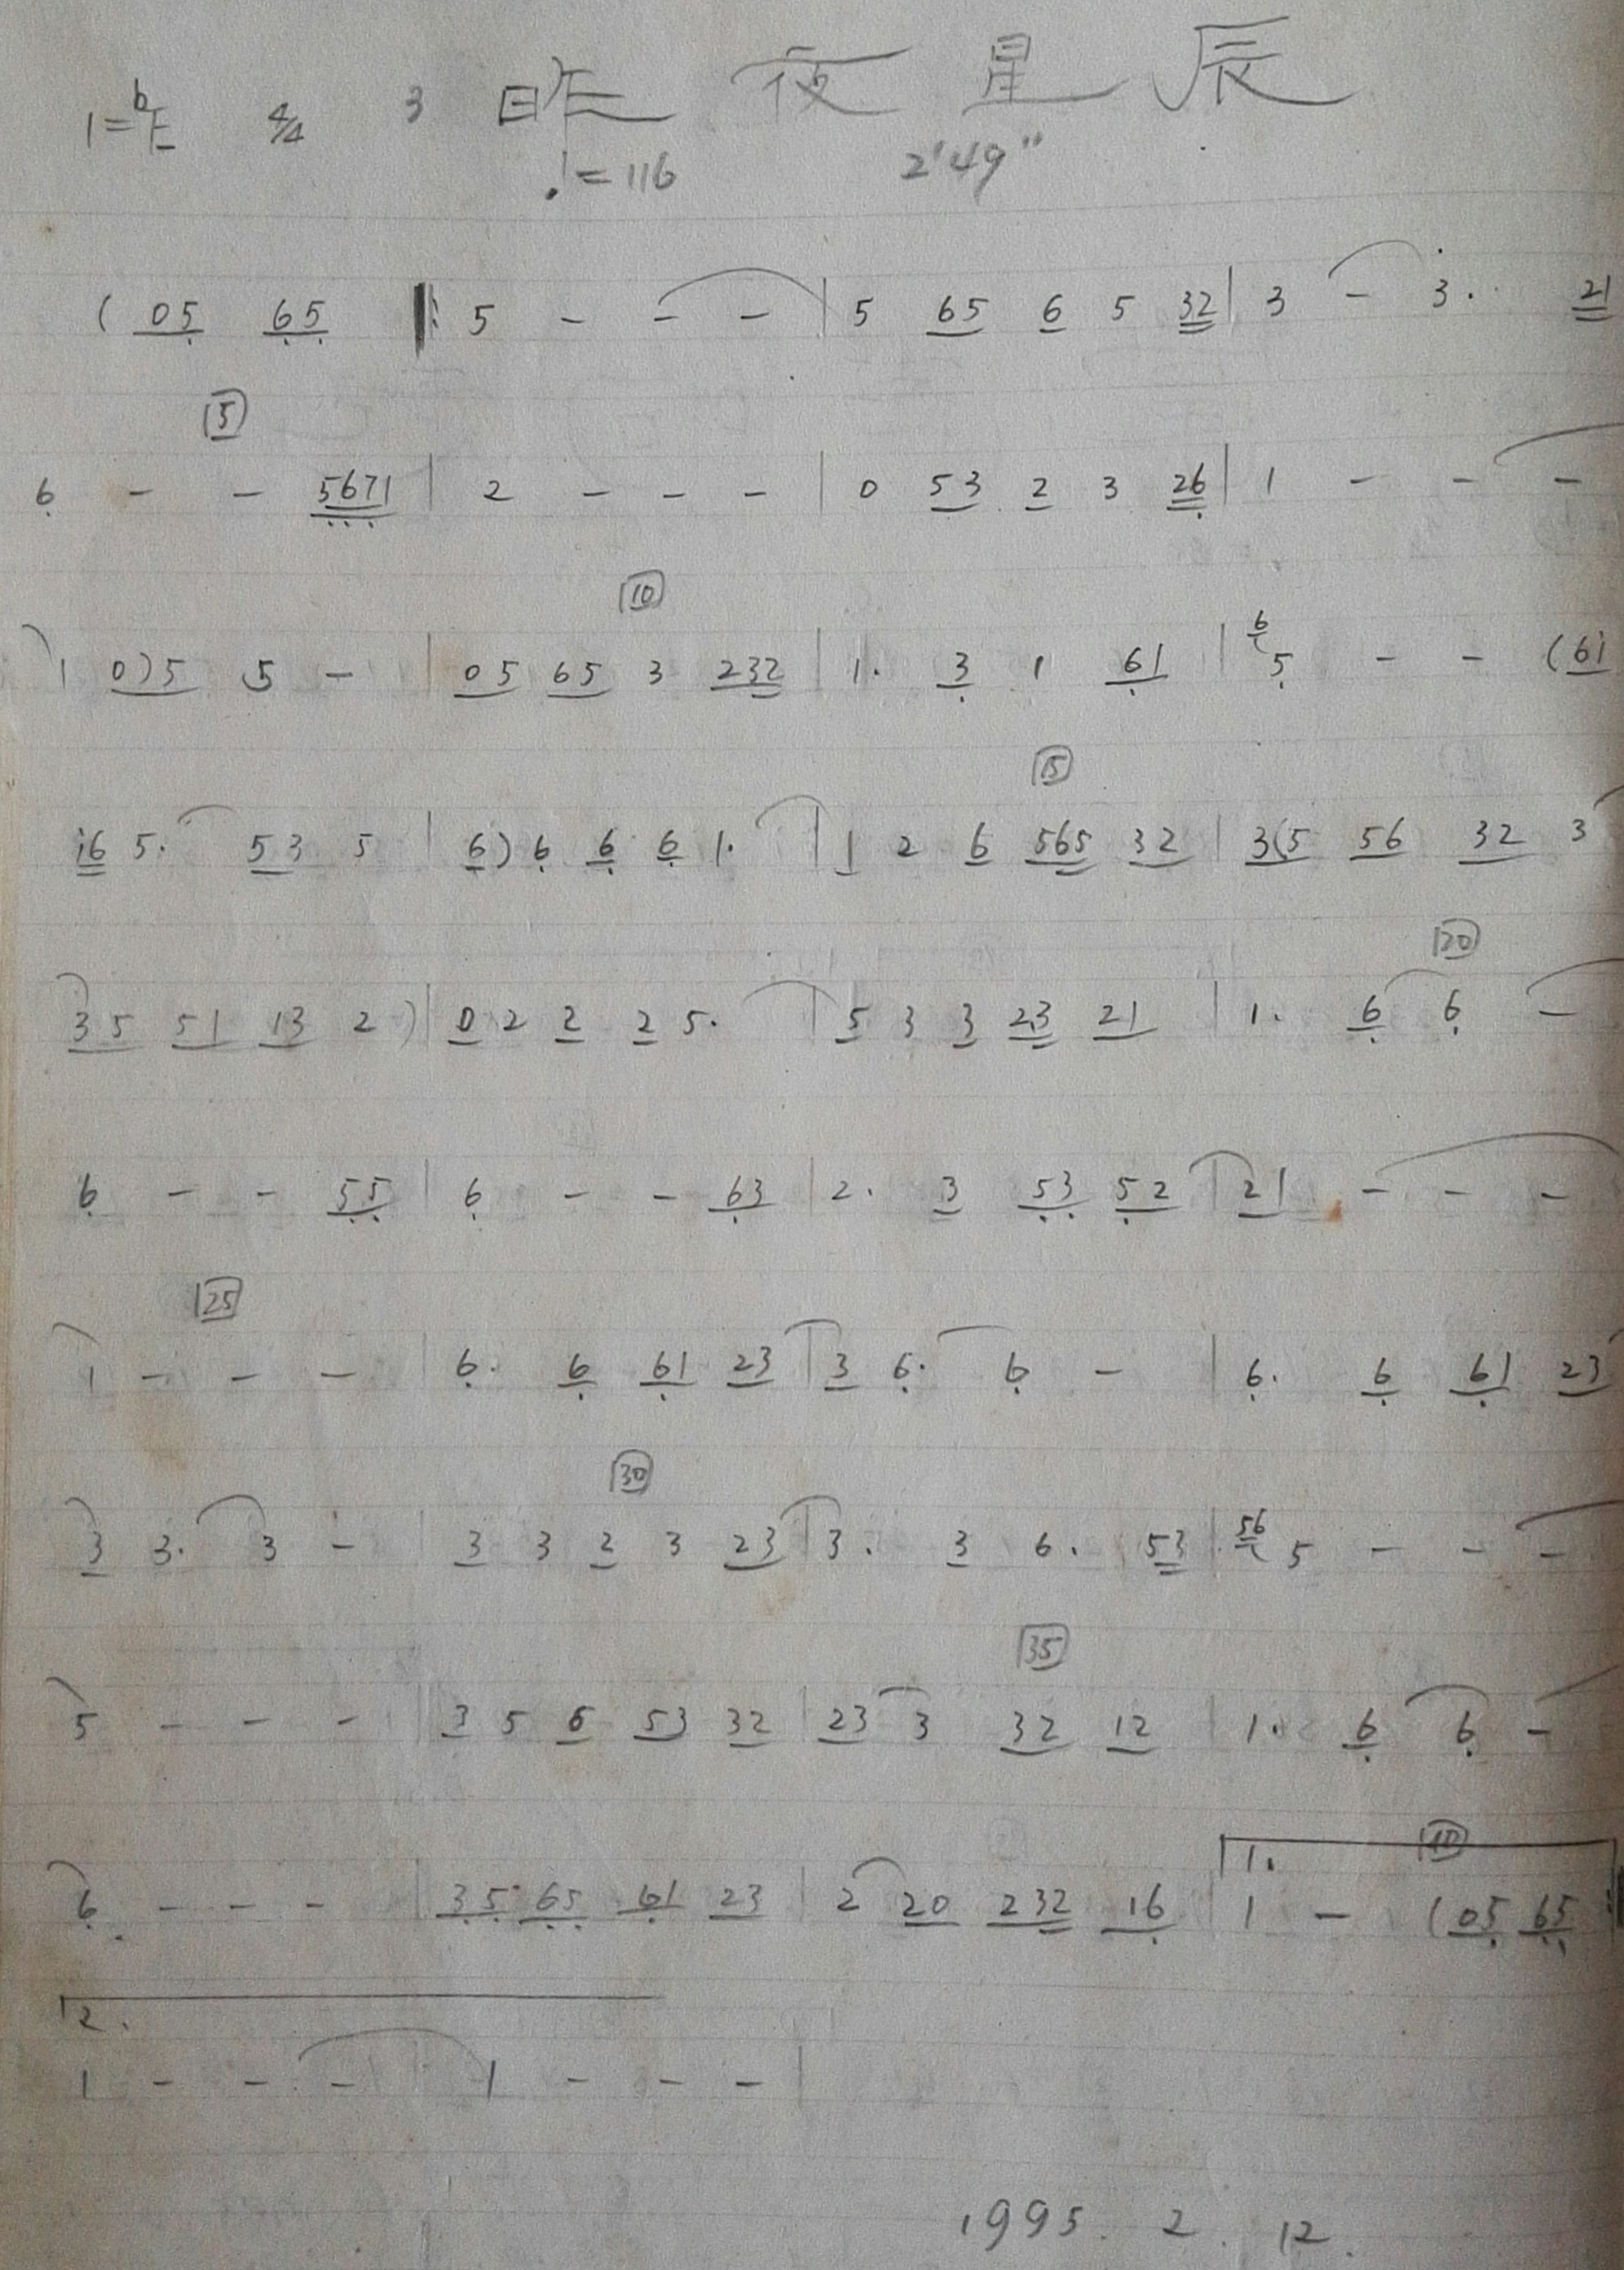 1=bE 4/4 3 昨夜星辰
♩=116 2'49"
( 05 65 ‖: 5 - - - | 5 65 6 5 32 | 3 - 3. 21
5
6 - - 5671 | 2 - - - | 0 53 2 3 26 | 1 - - -
10
1 0)5 5 - | 05 65 3 232 | 1. 3 1 61 | 6 5 - - (61
15
i6 5. 53 5 | 6) 6 6 6 1. | 1 2 6 565 32 | 3(5 56 32 3
20
35 51 13 2 ) | 0 2 2 2 5. | 5 3 3 23 21 | 1. 6 6 -
6 - - 55 | 6 - - 63 | 2. 3 53 52 | 21 - - -
25
1 - - - | 6. 6 61 23 | 3 6. 6 - | 6. 6 61 23
30
3 3. 3 - | 3 3 2 3 23 | 3. 3 6. 53 | 56 5 - - -
35
5 - - - | 3 5 6 53 32 | 23 3 32 12 | 1. 6 6 -
1. 40
6 - - - | 35 65 61 23 | 2 20 232 16 | 1 - (05 65 :‖
2.
1 - - - | 1 - - - |
1995. 2. 12.